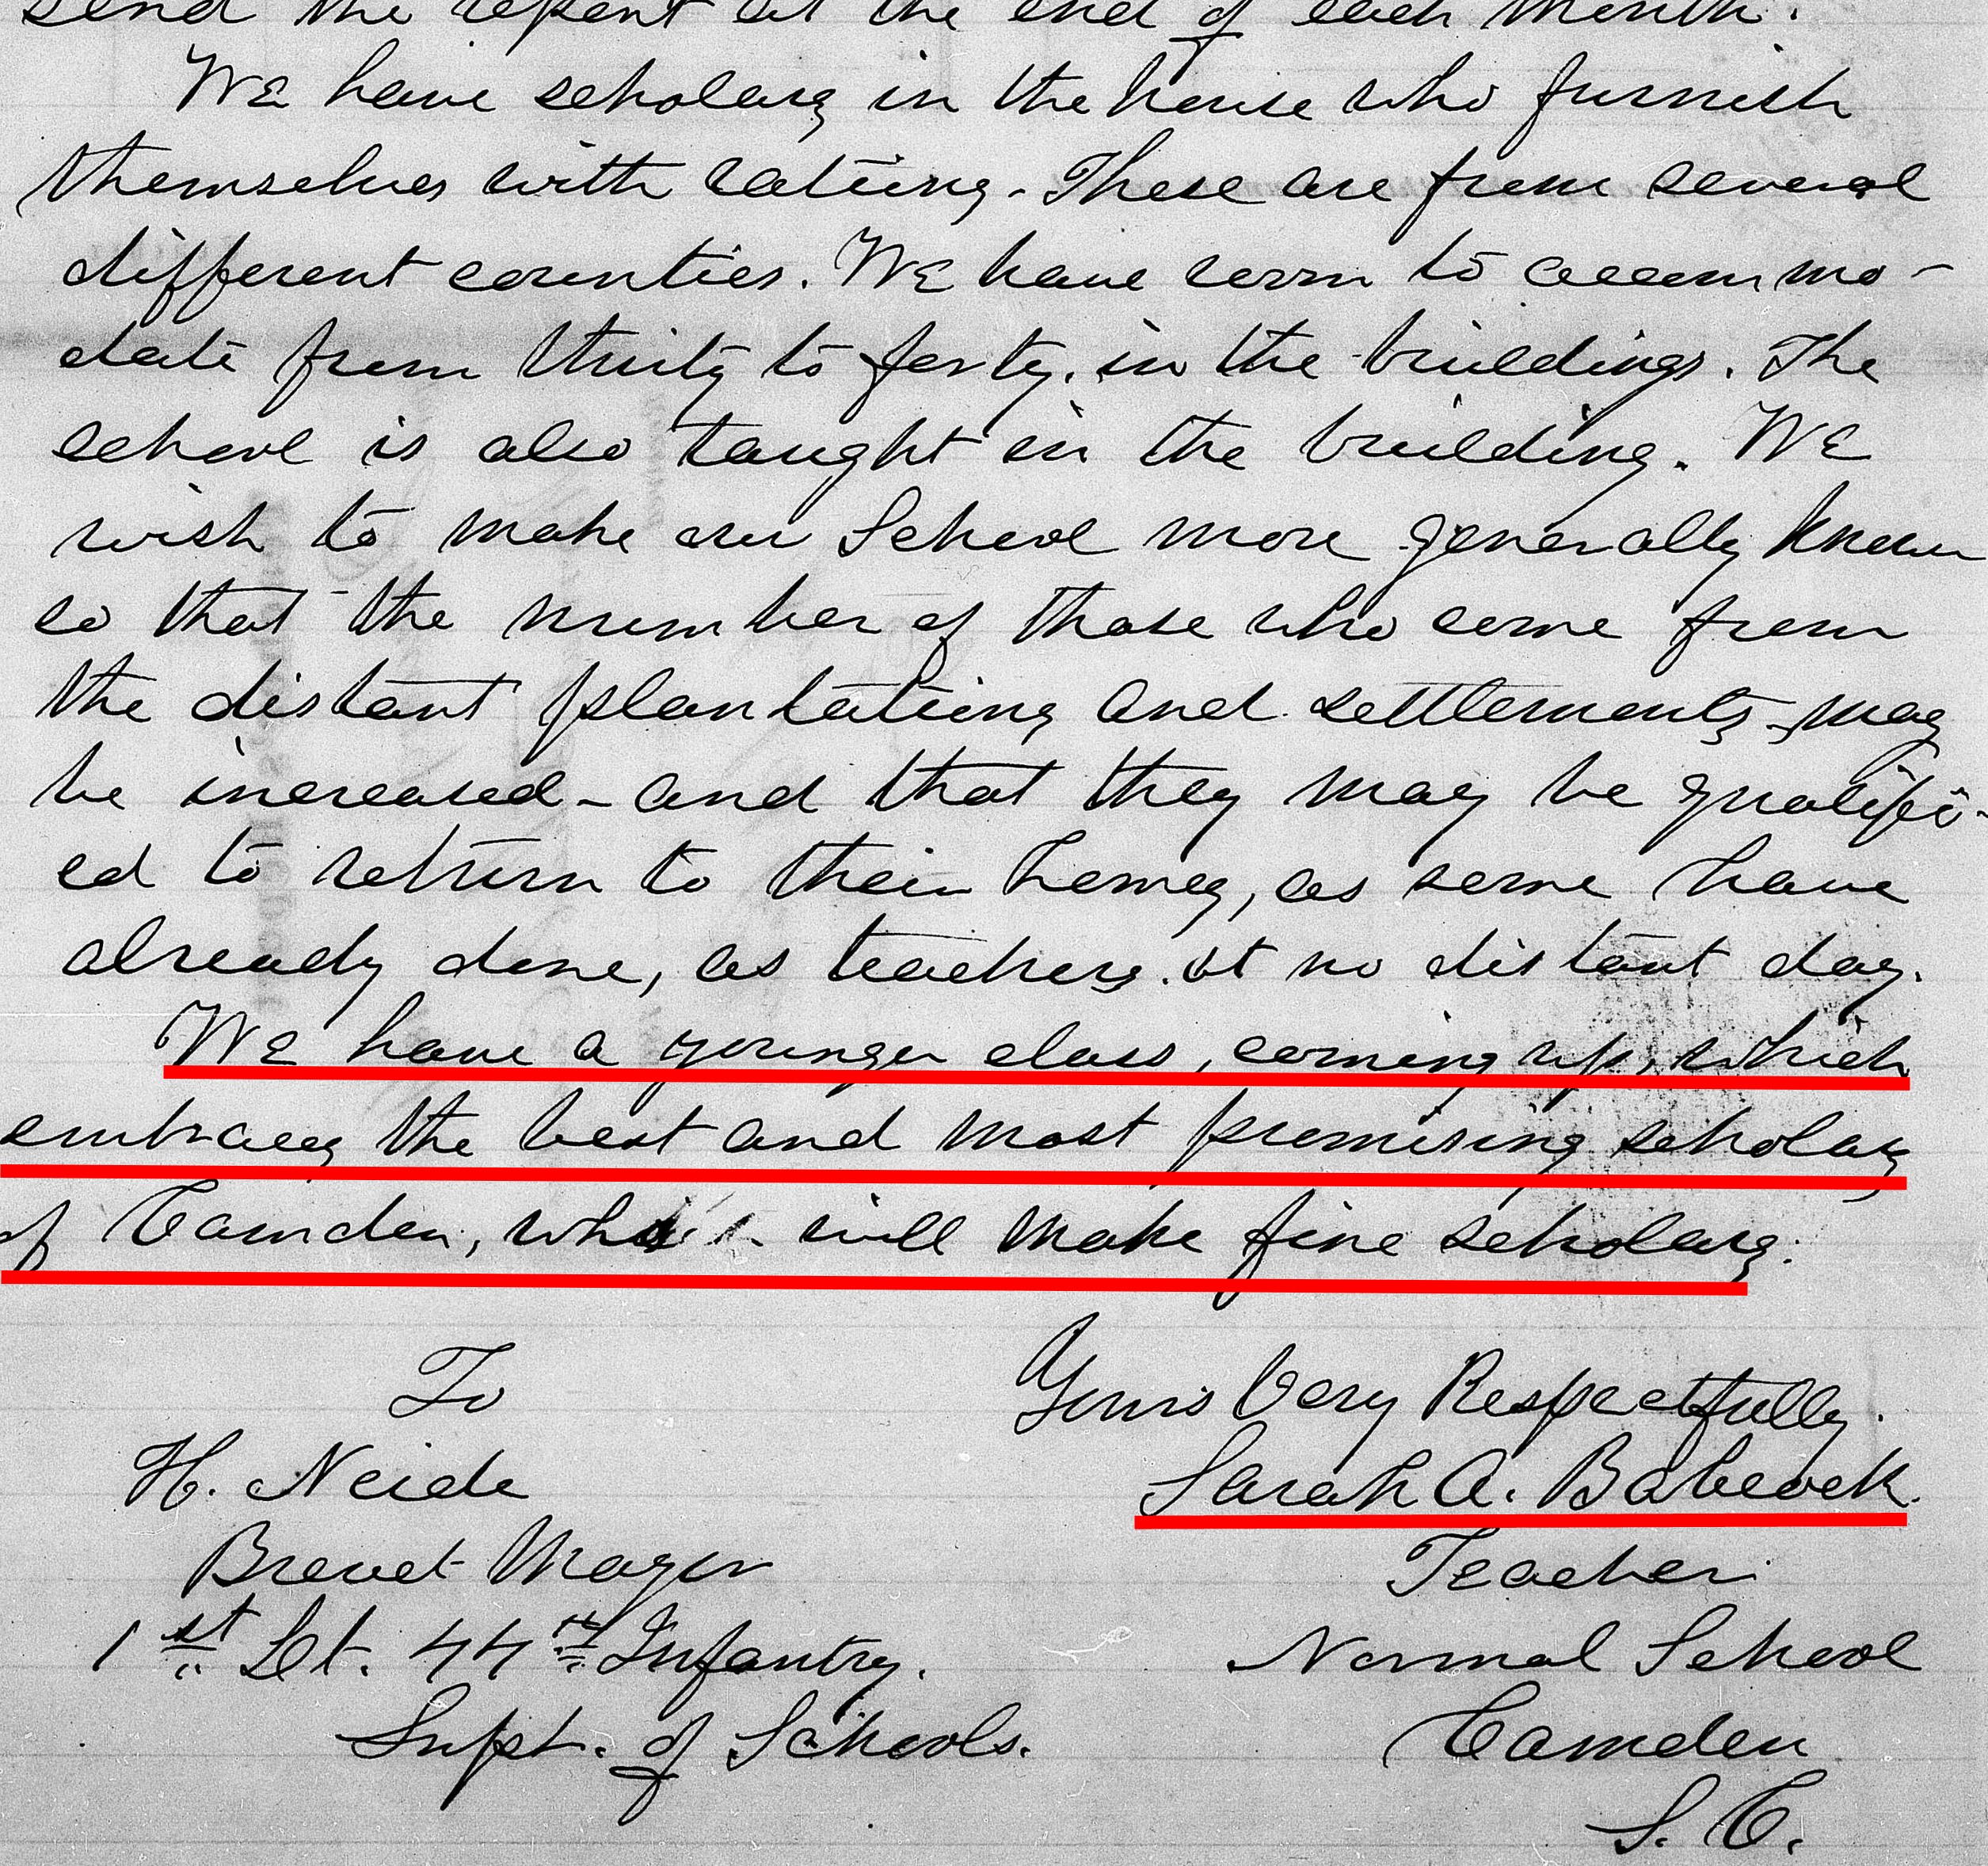 send the report at the end of each month.
We have scholars in the house who furnish
themselves with rations. These are from several
different counties. We have room to accommo-
date from thirty to forty, in the buildings. The
school is also taught in the building. We
wish to make our School more generally known
so that the number of those who come from
the distant plantations and settlements may
be increased - and that they may be qualifi-
ed to return to their homes, as some have
already done, as teachers. at no distant day.
We have a younger class, coming up, which
embraces the best and most promising scholars
of Camden, will make fine scholars.
To
H. Neide
Brevet Major
1st Lt. 44th Infantry.
Supt. of Schools.
Yours Very Respectfully.
Sarah A. Babcock.
Teacher
Normal School
Camden
S. C.